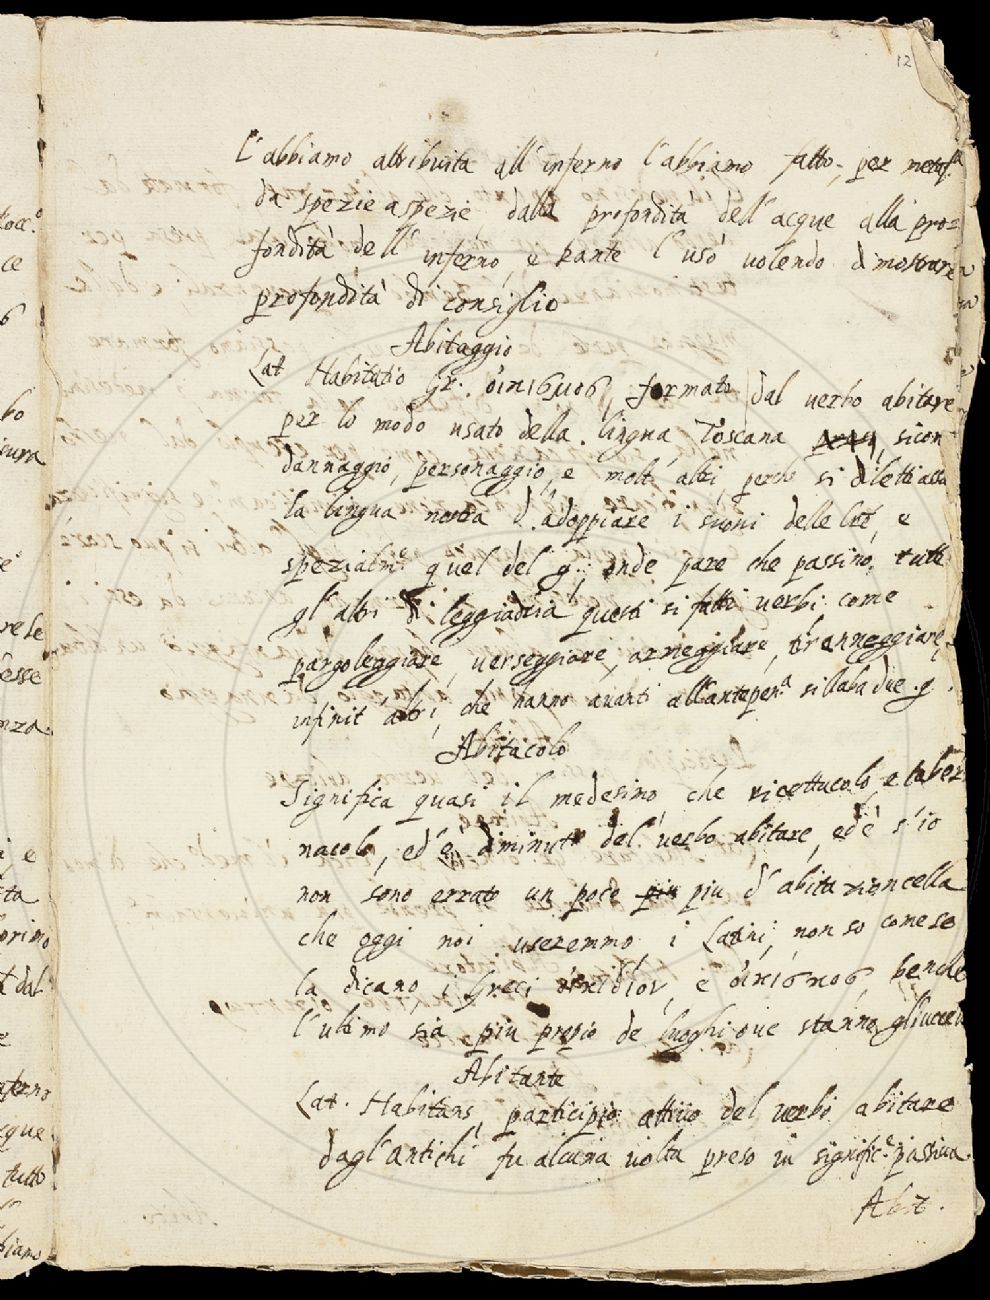 12
L'abbiamo attribuita all'inferno l'abbiamo fatto, per metaf.ª
da spezie a spezie dalla profondita dell'acque alla pro=
fondita dell'inferno, e Dante l'usò volendo dimostrare
profondità di consiglio
Abitaggio
Lat Habitatio Gr. formato dal verbo abitare
per lo modo usato della lingua Toscana sicon
dannaggio, personaggio, e molt'altri perche si diletti assai
la lingua nostra d'adoppiare i suoni delle lrẽ, e
spezialm.e quel del g: onde pare che passino, tutti
gl'altri di leggiadria questi si fatti verbi come
pargoleggiare, verseggiare, armeggiare, tranneggiare,
infinit'altri, che hanno avanti all'antepen.ª sillaba due .g.
Abitacolo
Significa quasi il medesimo che ricettacolo, e taber
nacolo, ed è diminut.o del verbo abitare, ed è s'io
non sono errato un poco piu d'abitazioncella
che oggi noi useremmo i Latini, non so come se
la dicano, i Greci οἰκίδιον, e benche
l'ultimo sia piu propio de luoghi ove stanno gli uccelli
Abitante
Lat. Habitans, participio attivo del verbo abitare
dagl'antichi fu alcuna volta preso in signific.e passiva.
Abit.